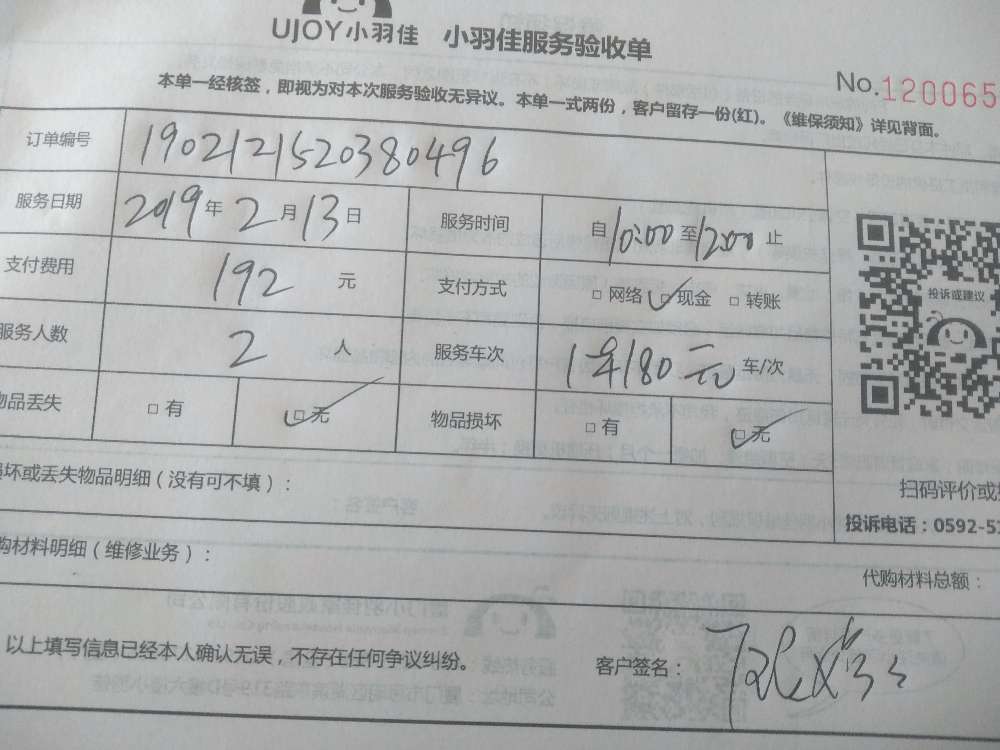 UJOY小羽佳 小羽佳服务验收单
No.120065
本单一经核签，即视为对本次服务验收无异议。本单一式两份，客户留存一份(红)。《维保须知》详见背面。
订单编号 1902121520380496
服务日期 2019年2月13日 服务时间 自10:00至12:00止
支付费用 192 元 支付方式 □网络 ☑现金 □转账
服务人数 2 人 服务车次 1车180元 车/次
物品丢失 □有 ☑无 物品损坏 □有 ☑无
投诉或建议
损坏或丢失物品明细（没有可不填）：
扫码评价或
投诉电话：0592-51
购材料明细（维修业务）：
代购材料总额：
以上填写信息已经本人确认无误，不存在任何争议纠纷。 客户签名：